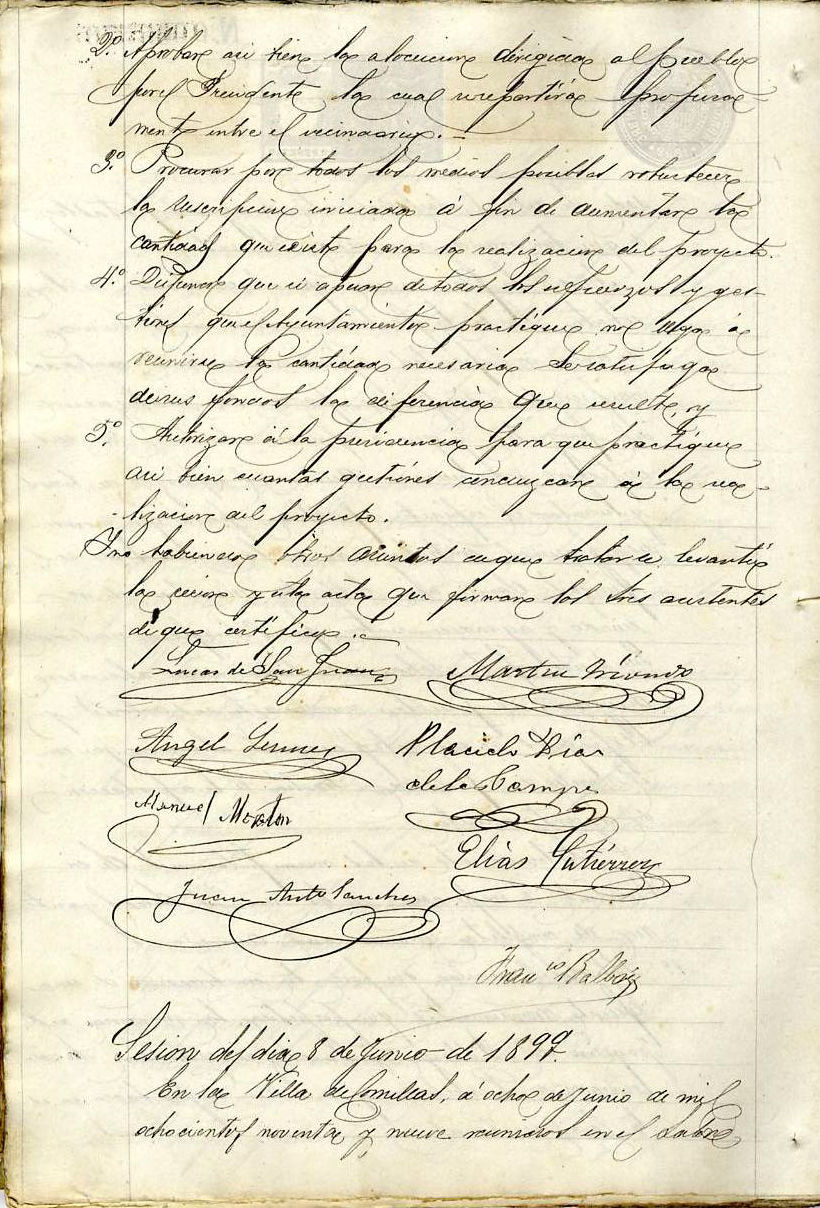 2.º Aprobar asi bien la alocucion dirigida al pueblo
por el Presidente la cual se repartirá profusa-
mente entre el vecindario.
3.º Procurar por todos los medios posibles robustecer
la suscripcion iniciada á fin de aumentar la
cantidad que existe para la realizacion del proyecto.
4.º Disponer que si apesar de todos los esfuerzos y ges-
tiones que el Ayuntamiento practique no llega á
reunirse la cantidad necesaria se satisfaga
de sus fondos la diferencia que resulte, y
5.º Autorizar á la presidencia para que practique
asi bien cuantas gestiones conduzcan á la rea-
lizacion del proyecto.
Y no habiendo otros asuntos de que tratar se levantó
la sesion y esta acta que firman los Sres asistentes
de que certifico.
Lucas de San Juan Martin
Angel Placido Diaz
de la Campa
Manuel
Elías Gutiérrez
Juan Antº Sanchez
Franco Balbás
Sesion del dia 8 de Junio de 1899.
En la Villa de Comillas, á ocho de Junio de mil
ochocientos noventa y nueve reunidos en el salon